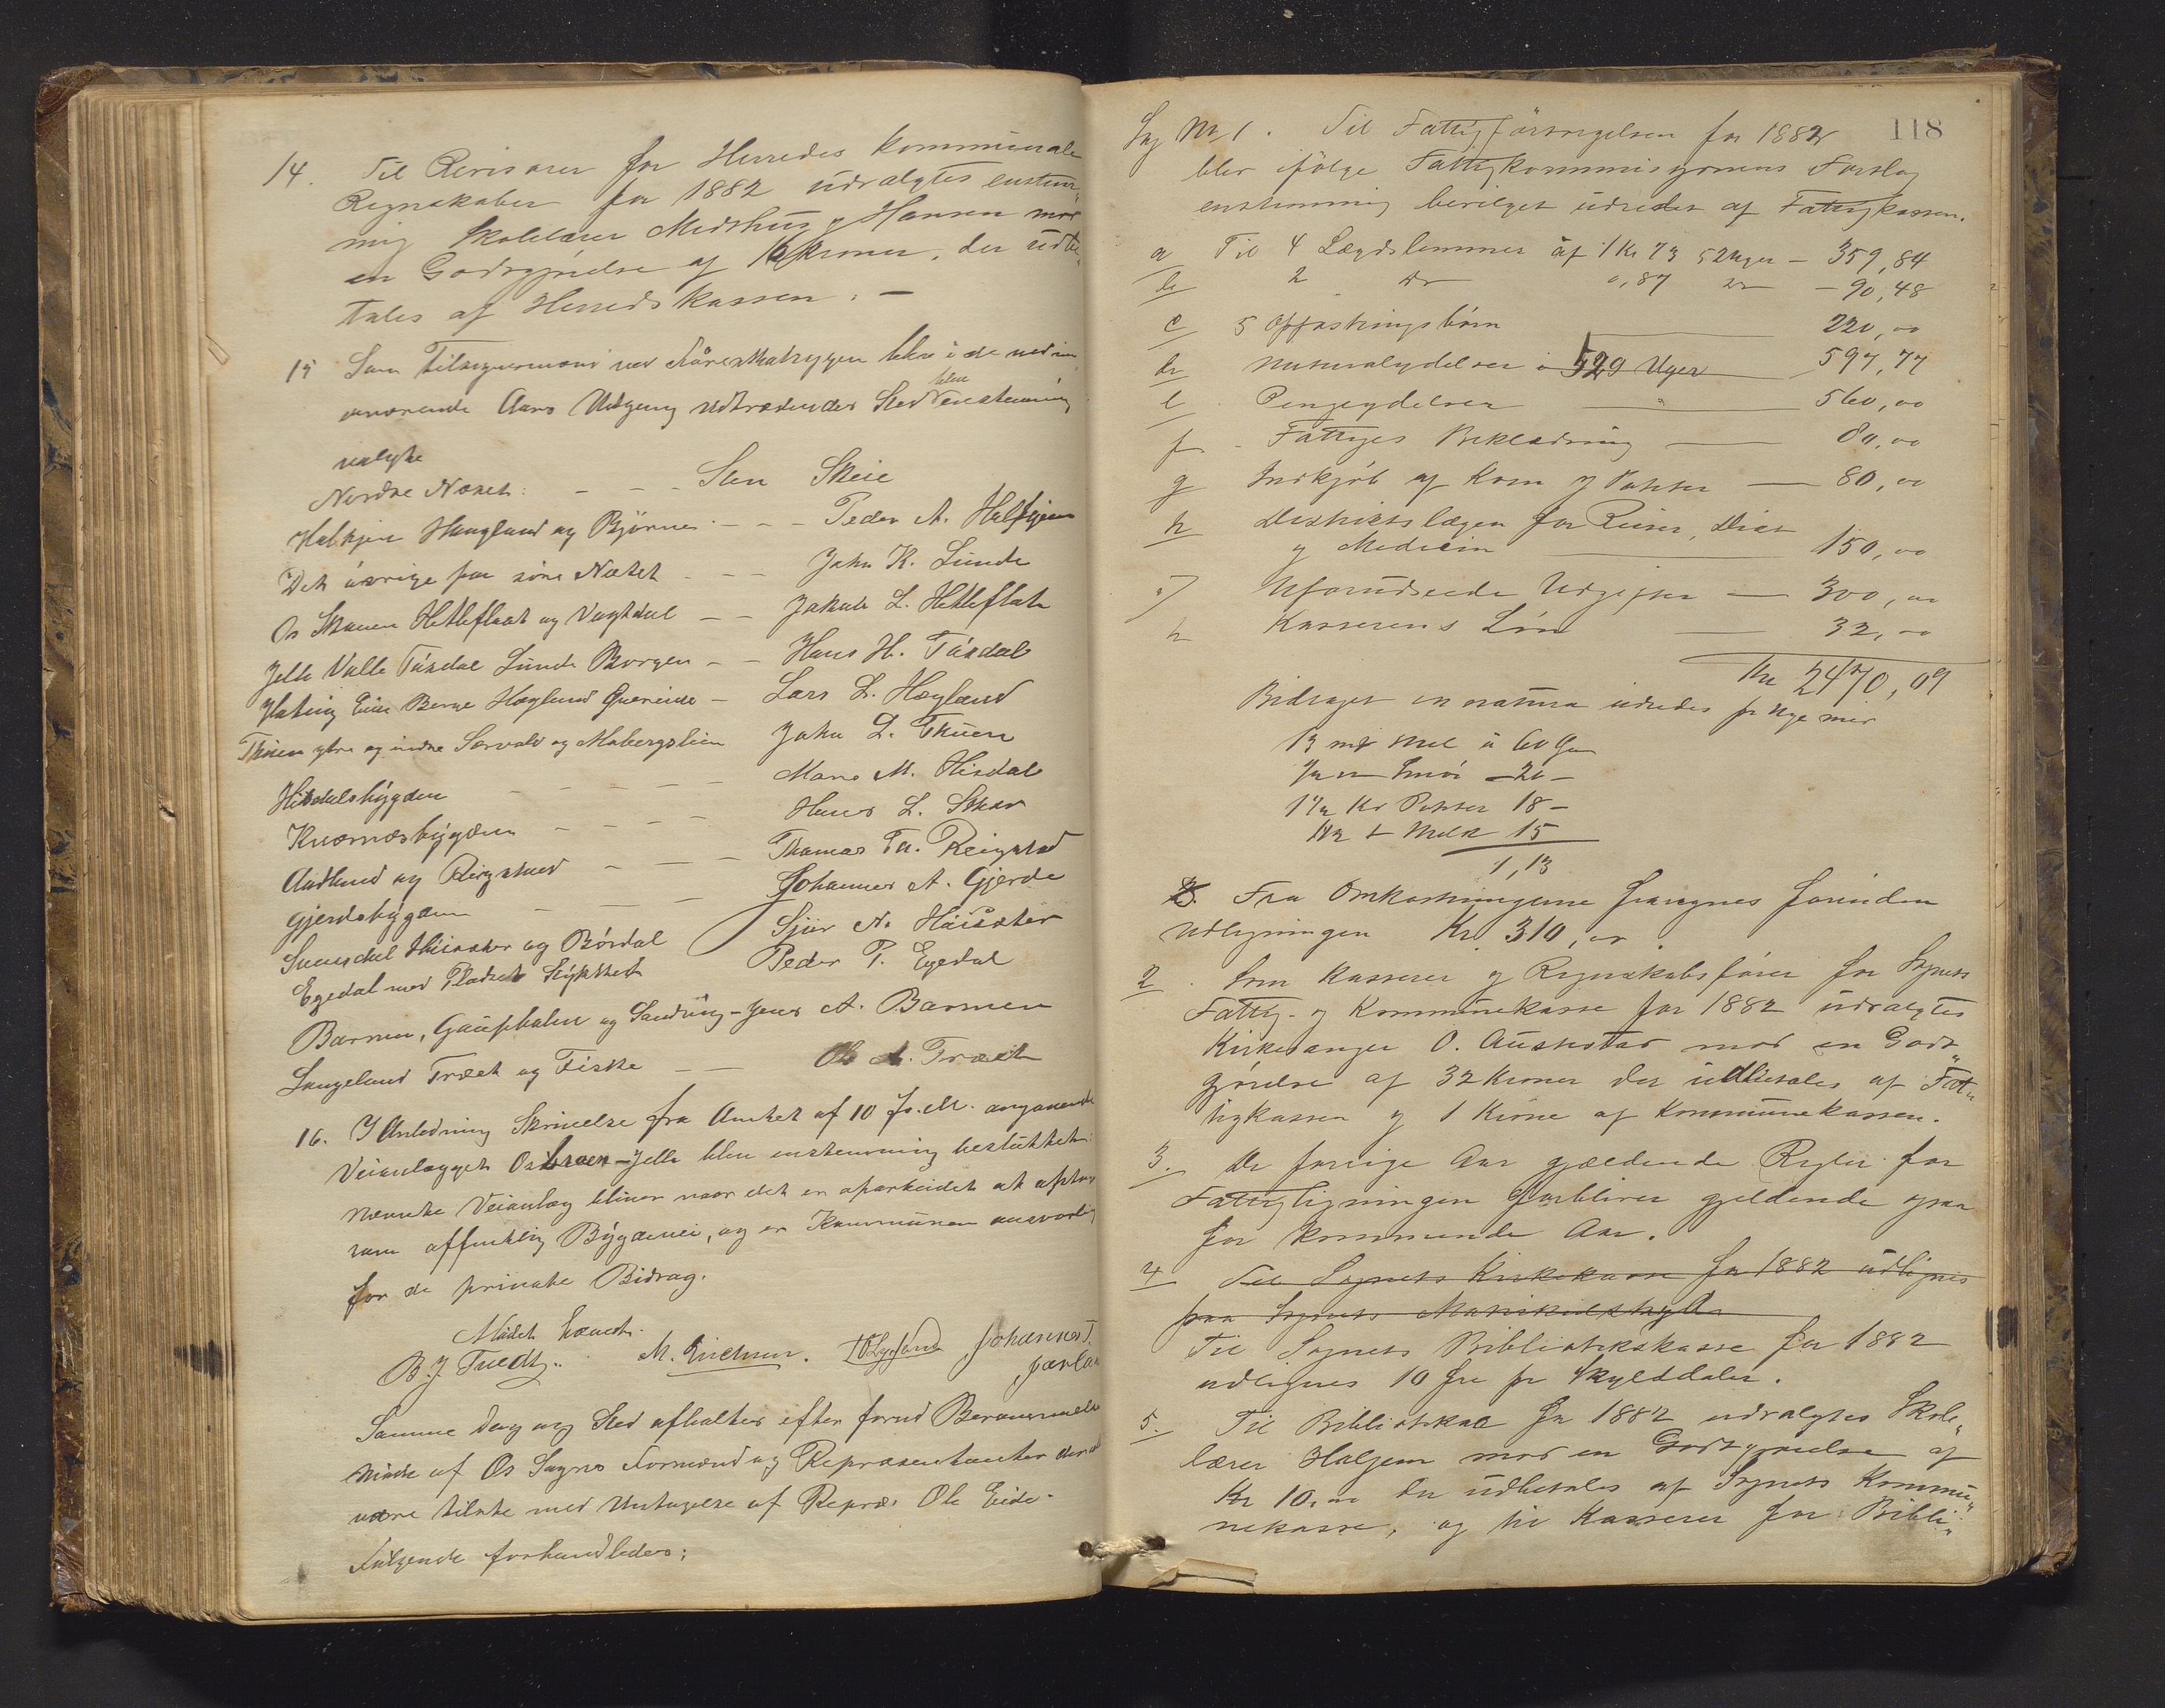 14. Til Revisorer for Herredes Kommunale
Regnskaber for 1882 udvalgtes enstem„
mig Skolelærer Midthus og Hansen mod
en Godtgjørelse af 16 Kroner, der udbe„
tales af Herredskassen. —
15 Som Tilsynsmænd ved blev i de ved in
nværende Aars Udgang udtrædendes Sted blev enstemmig
valgte
Nordre Næset: - - - Sten Skeie
Halhjem Haugland og Bjørnen - - - Peder A. Halhjem
Det øvrige paa søre Næset - - - John K. Lunde
Os Skauen Hetleflaat og Vaghdal - - Jakob L. Hetleflaat
Jelle Valle Tøsdal Lunde Borgen - - Hans H. Tøsdal
Hatvig Eide Berge Hægland - Lars L. Hægland
Thuen ytre og indre Sørvold og Mobergslien John L. Thuen
Hisdalsbygden - - - - - Mons M. Hisdal
Kuvennæsbygden - - - - Hans L. Skar
Aadland og Reigstad - - - Thomas Th. Reigstad
Gjerdsbygden - - - Johannes A. Gjerde
Hausater og Børdal Sjur N. Hausater
Egedal med Pladset Peder T. Egedal
Barmen, Gaupholm og Sandvig - Jens A. Barmen
Langeland Træet og Fiske - - Ole A. Træet
16. I Anledning Skrivelse fra Amtet af 10 f. M. angaaende
Veianlægget Osbraen - Jelle blev enstemmig besluttet:
Nævnte Veianlæg bliver naar det er oparbeidet at
som offentlig Bygdevei, og er Kommunen ansvarlig
for de private Bidrag.
Mødet hævet.
B. J. Tvedt. M. Johannes T.
Samme Dag og Sted afholdtes efter forud Berammelse
Møde af Os Sogns Formænd og Repræsentanter
være tilste med Undtagelse af Repræs. Ole Eide.
Følgende forhandledes:
118
Sag No 1. Til Fattigforsørgelsen for 1882
blev ifølge Fattigkommisjonens Forslag
enstemmig bevilget udredet af Fattigkassen.
a Til 4 Lægdslemmer af 1 Kr 73 52 Uger - 359,84
b 2 do 0,87 do - 90,48
c 5 Opfostringsbørn 220,00
d Naturalydelser i 529 Uger 597,77
e Pengeydelser " 560,00
f Fattiges Beklædning 80,00
g Indkjøb af Korn og Poteter 80,00
h Distriktslægen for Reiser, Diæt
og Medicin 150,00
i Uforudseede Udgifter 300,00
k Kasserens Løn 32,00
Kr 2470,09
Bidraget in natura udredes pr Uge med
13 mk Mel à 60 Øre
1/2 Smør - 20 -
1 1/2 Kr Poteter 18 -
Melk 15
1,13
Fra Omkostningerne fraregnes forinden
Udligningen Kr 310,00.
2. Som Kasserer og Regnskabsfører for Sognets
Fattig- og Kommunekasse for 1882 udvalgtes
Kirkesanger O. Austestad mod en Godt„
gjørelse af 32 Kroner der udbetales af Fat„
tigkassen og 1 Krone af Kommunekassen.
3. De forrige Aar gjældende Regler for
Fattigligningen forbliver gjeldende ogsaa
for kommende Aar.
4 Til Sognets Kirkekasse for 1882 udlignes
paa Sognets Matrikulskyld
Til Sognets Bibliotekskasse for 1882
udlignes 10 Øre pr Skylddaler.
5. Til Bibliotekar for 1882 udvalgtes Skole„
lærer Haljem mod en Godtgjørelse af
Kr 10,00 der udbetales af Sognets Kommu„
nekasse, og til Kasserer for Bibli„